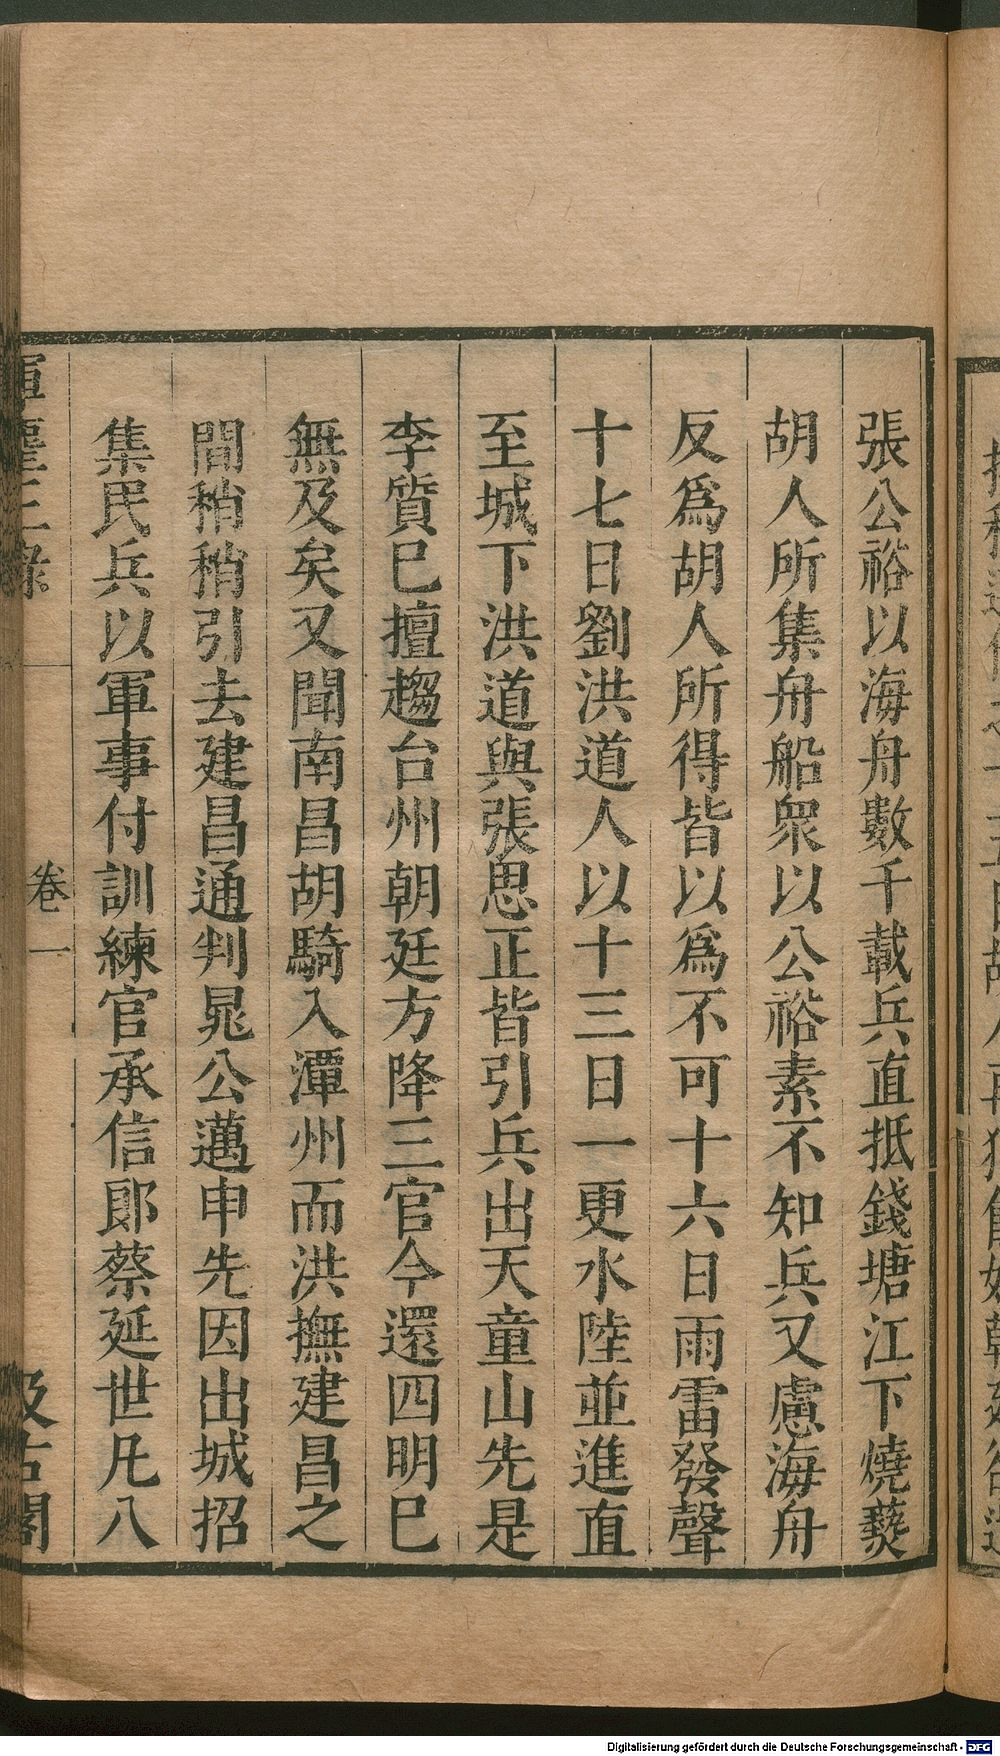 張公裕以海舟數千載兵直抵錢塘江下燒爇
胡人所集舟船衆以公裕素不知兵又慮海舟
反爲胡人所得皆以爲不可十六日雨雷發聲
十七日劉洪道人以十三日一更水陸並進直
至城下洪道與張思正皆引兵出天童山先是
李質巳擅趨台州朝廷方降三官令還四明巳
無及矣又聞南昌胡騎入潭州而洪撫建昌之
間稍稍引去建昌通判晁公邁申先因出城招
集民兵以軍事付訓練官承信郞蔡延世凡八
卷一
汲古閣
Digitalisierung gefördert durch die Deutsche Forschungsgemeinschaft - DFG